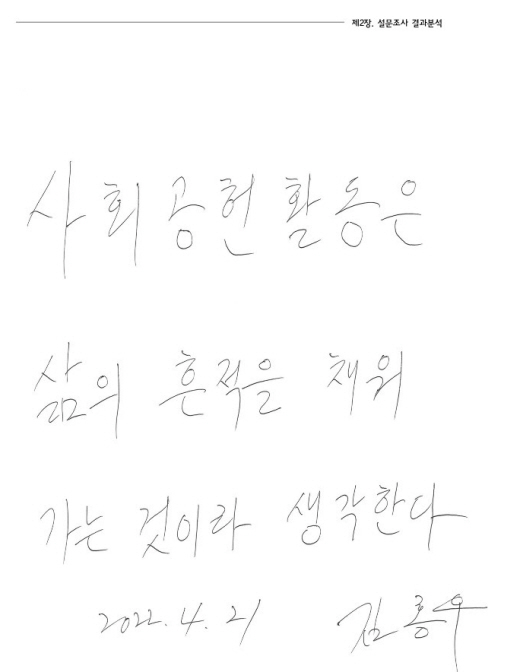 제2장. 설문조사 결과분석
사회공헌활동은
삶의 흔적을 채워
가는 것이라 생각한다
2022.4.21 김홍우